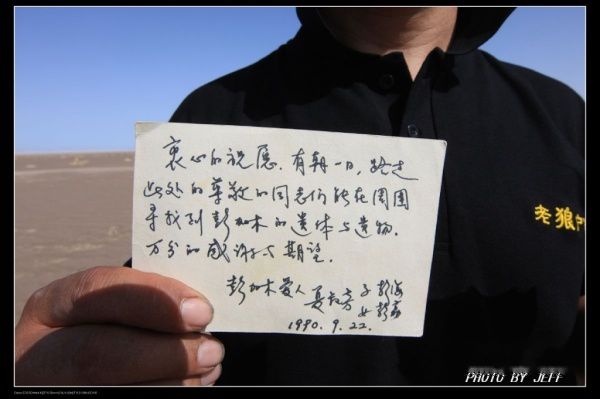 衷心的祝愿．有朝一日，路过
此处的尊敬的同志们能在周围
寻找到彭加木的遗体与遗物．
万分的感谢与期望．
彭加木爱人 夏叔芳 子 彭海
女 彭荔
1990．9．22．
老狼户
PHOTO BY JEFF